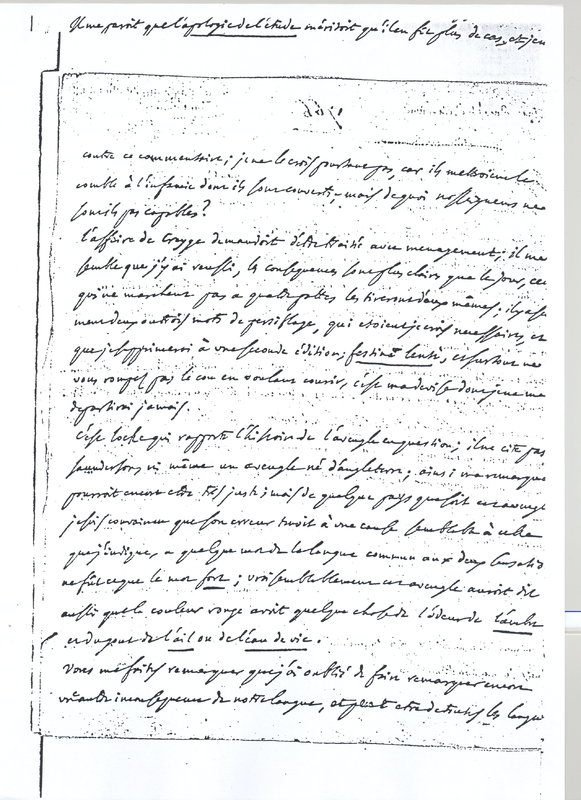 Il me paroit que l'apologie de l'étude méritoit qu'il en fit plus de cas, et j'en
contre ce commentaire; je ne le crois pourtant pas, car ils mettroient le
comble à l'infamie dont ils sont couverts; mais de quoi nosseigneurs ne
sont ils pas capables?
l'affaire de demandoit d'être traitée avec menagement; il me
semble que j'y ai reussi, les consequences sont plus claires que le jour, ceux
qui ne marchent pas a quatre pattes les tireront d'eux mêmes; il y a
deux ou trois mots de persiflage, qui etoient je crois necessaires, et
que je supprimerai à une seconde édition; festina lente, et surtout ne
vous rompez pas le cou en voulant courir, c'est ma devise dont je ne me
departirai jamais.
c'est locke qui rapporte l'histoire de l'aveugle en question; il ne cite pas
saunderson, ni même un aveugle né d'angleterre; ainsi ma remarque
pourroit encore etre tres juste; mais de quelque pays que soit cet aveugle
je suis convaincu que son erreur tenoit à une cause semblable à celle
que j'indique, a quelque mot de la langue commun aux deux
ne fût ce que le mot fort; vraisemblablement cet aveugle auroit dit
aussi que la couleur rouge avoit quelque chose de l'odeur de l'ambre
et du gout de l'ail ou de l'eau de vie.
Vous me faites remarquer que j'ai oublié de faire remarquer encore
une autre inconsequence de notre langue, et peut etre de toutes les langues